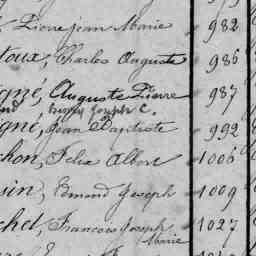 Pierre Jean Marie 982
toux, Charles Auguste 985
gné, Auguste Pierre 987
Joseph C.
gné, Jean Baptiste 992
hon, Felix Albert 1006
sin, Edmond Joseph 1009
chet, Francois Joseph 1027
Marie